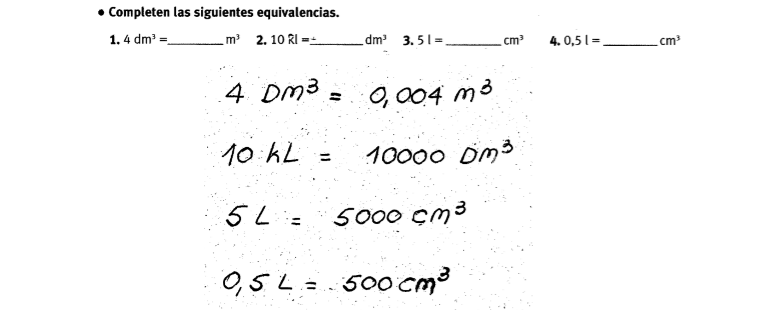 • Completen las siguientes equivalencias.
1. 4 dm³ =________ m³ 2. 10 kl =________ dm³ 3. 5 l = ________ cm³ 4. 0,5 l = ________ cm³
4 Dm³ = 0,004 m³
10 kL = 10000 Dm³
5 L = 5000 cm³
0,5 L = 500 cm³